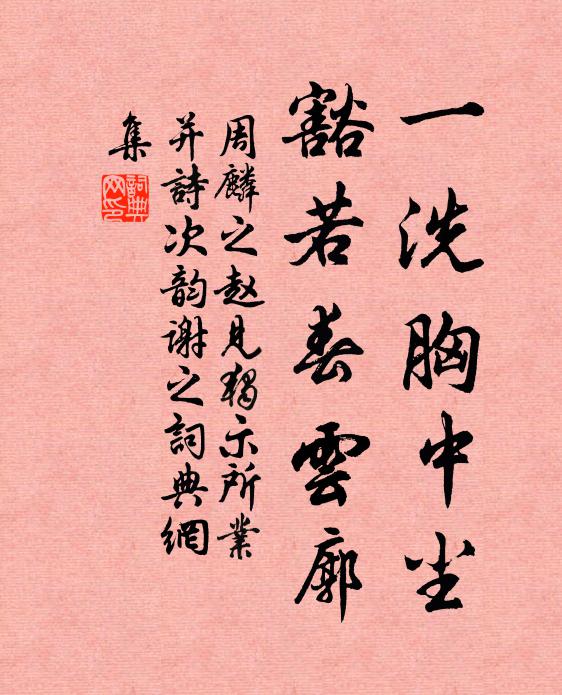 一洗胸中尘
豁若春雲廓
周麟之赵見獨示所業
并詩次韵谢之詞典網
集
詞典
网印